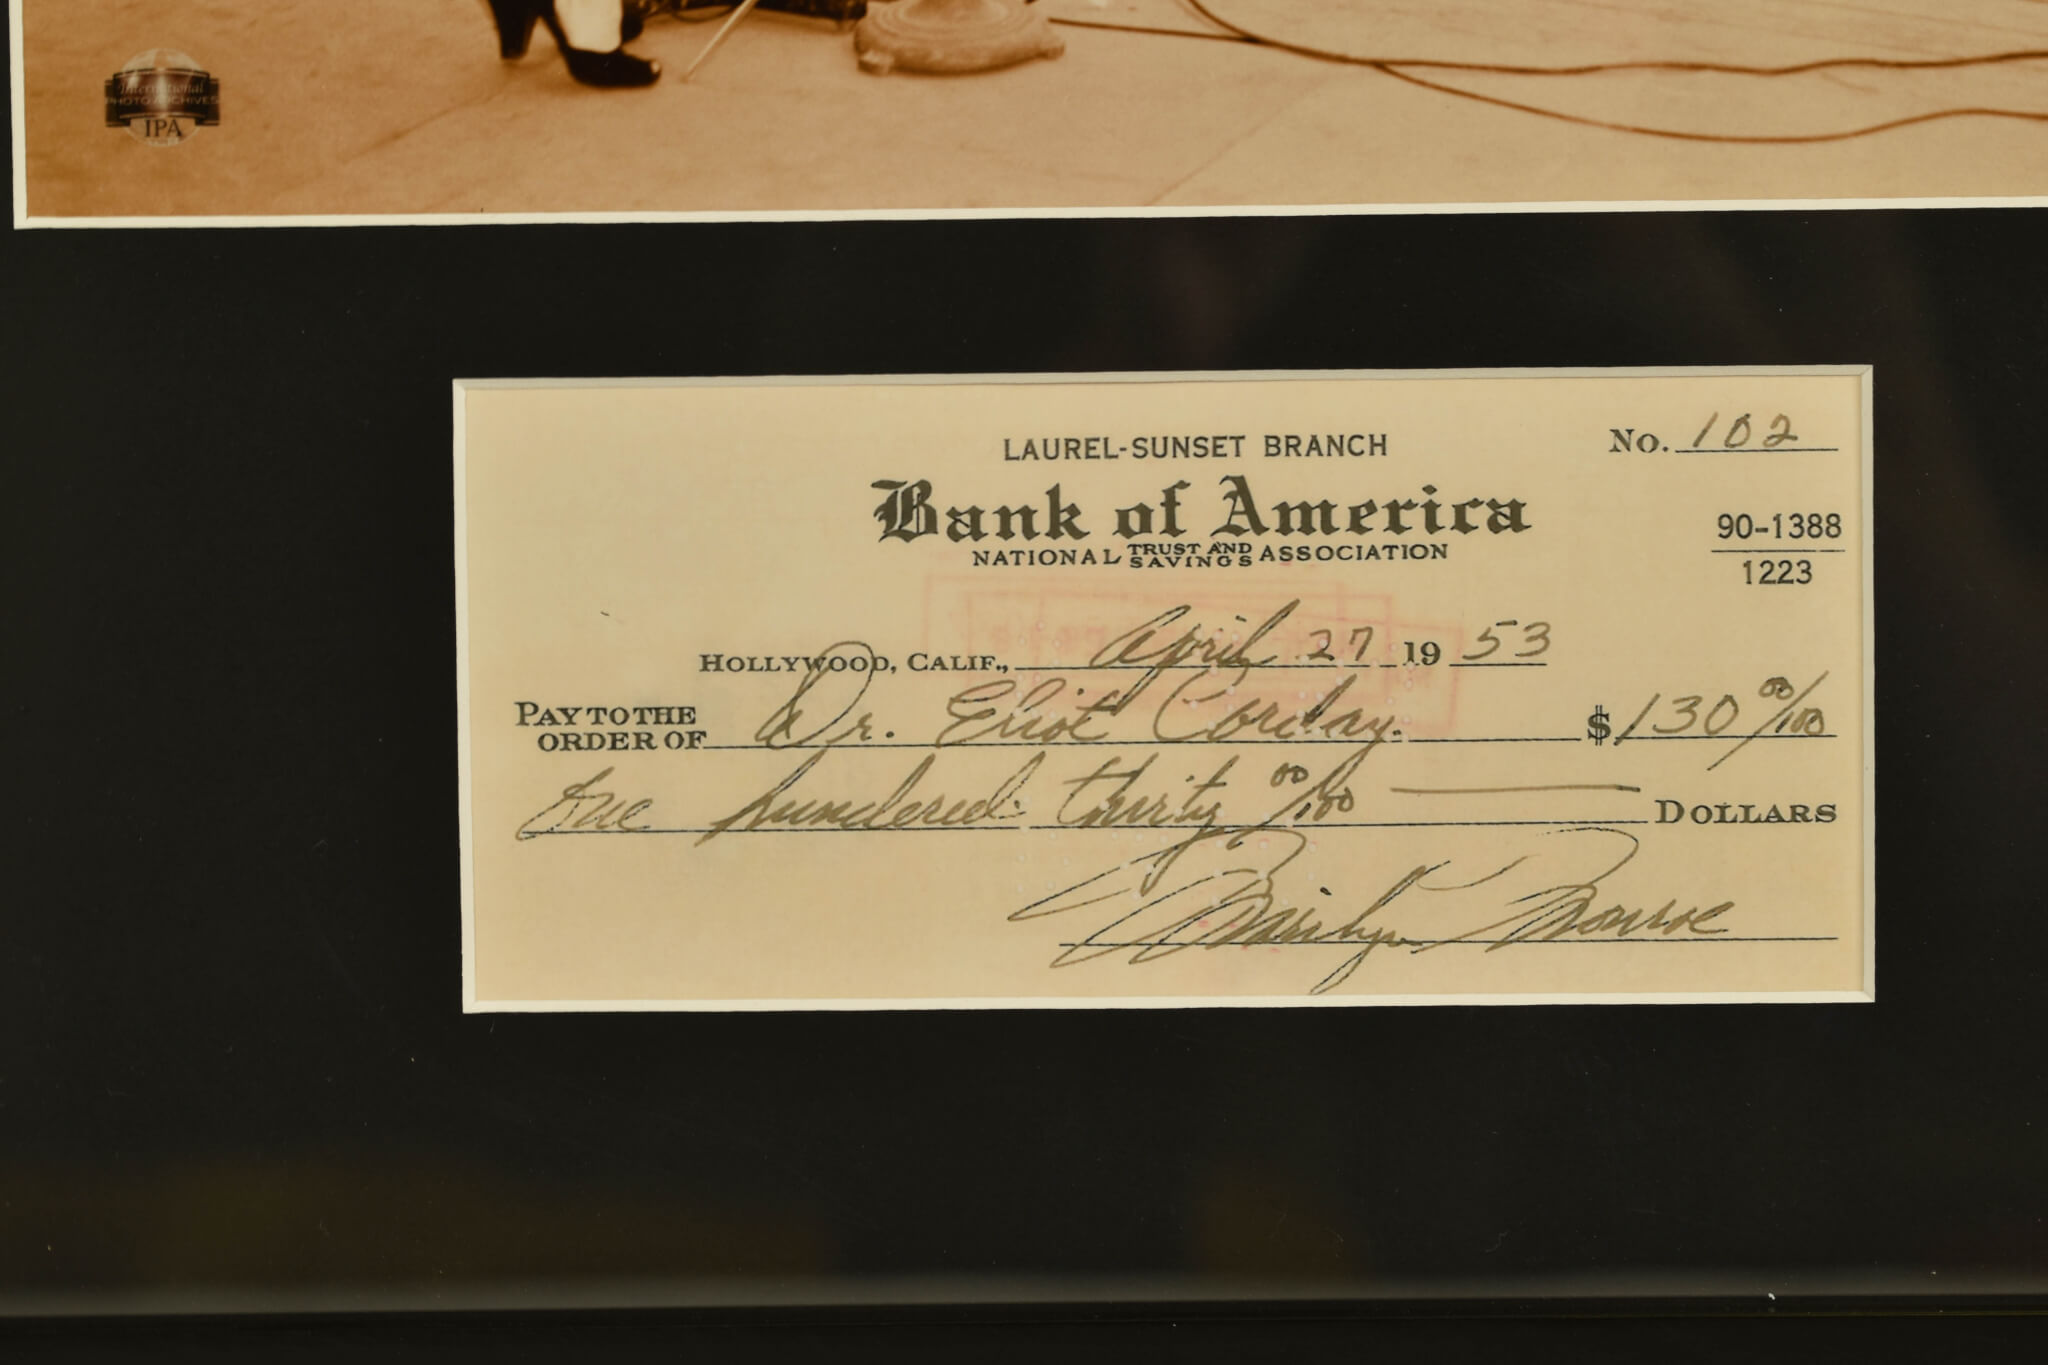 International
PHOTO ARCHIVES
IPA
LAUREL-SUNSET BRANCH
No. 102
Bank of America
NATIONAL TRUST AND SAVINGS ASSOCIATION
90-1388
1223
HOLLYWOOD, CALIF., April 27 1953
PAY TO THE ORDER OF Dr. Eliot Corday. $130 00/100
One hundered thirity 00/100 — DOLLARS
Marilyn Monroe